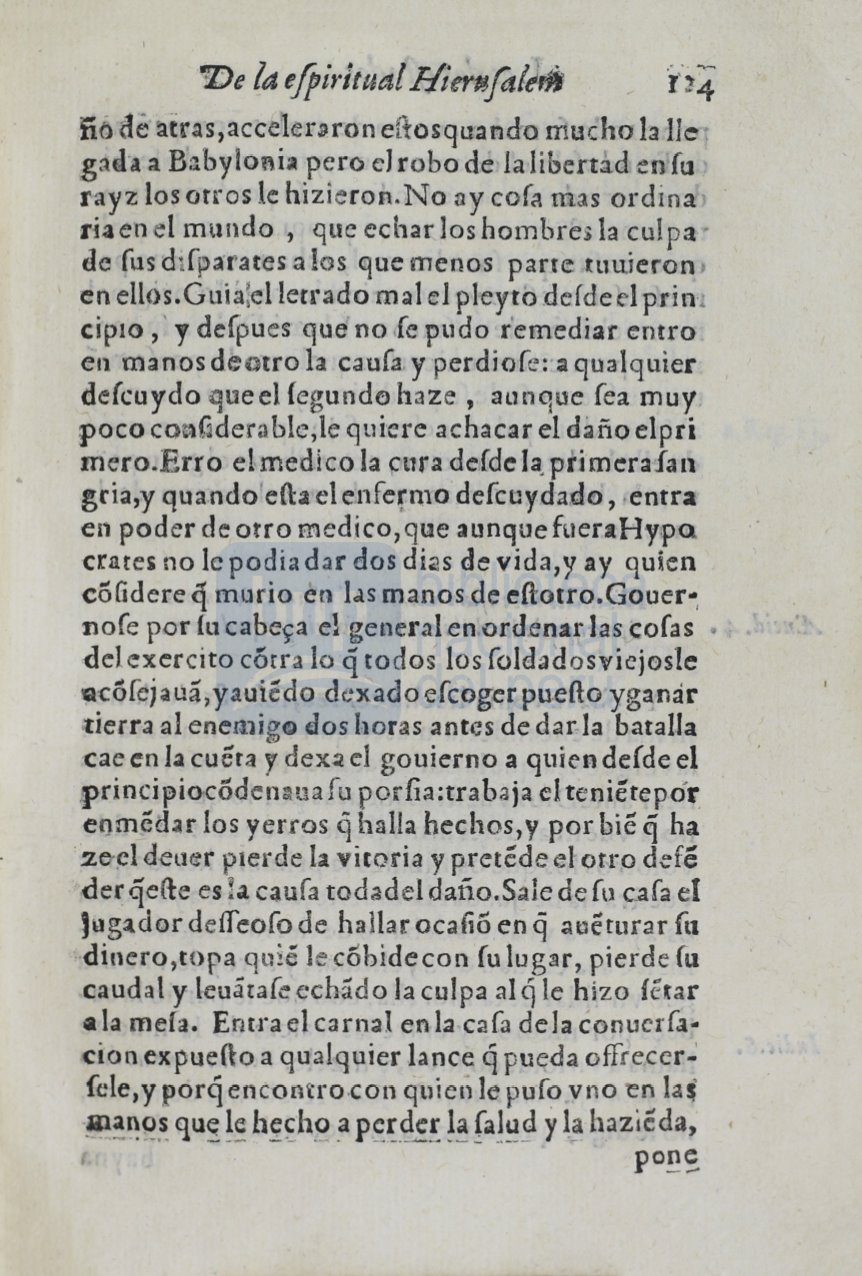 De la eſpiritual Hieruſalem 124
ño de atras,acceleraron eſtosquando mucho la lle
gada a Babylonia pero el robo de la libertad en ſu
rayz los otros le hizieron.No ay coſa mas ordina
ria en el mundo , que echar los hombres la culpa
de ſus diſparates a los que menos parte tuuieron
en ellos.Guia el letrado mal el pleyto deſde el prin
cipio , y deſpues que no ſe pudo remediar entro
en manos de otro la cauſa y perdioſe: a qualquier
deſcuydo que el ſegundo haze , aunque ſea muy
poco conſiderable,le quiere achacar el daño elpri
mero.Erro el medico la cura deſde la primera ſan
gria,y quando eſta el enfermo deſcuydado , entra
en poder de otro medico,que aunque fuera Hypo
crates no le podia dar dos dias de vida,y ay quien
cõſidere q̃ murio en las manos de eſtotro.Gouer-
noſe por ſu cabeça el general en ordenar las coſas
del exercito cõtra lo q̃ todos los ſoldados viejos le
acõſejauã,y auiẽdo dexado eſcoger pueſto y ganar
tierra al enemigo dos horas antes de dar la batalla
cae en la cuẽta y dexa el gouierno a quien deſde el
principio cõdenaua ſu porfia:trabaja el teniẽte por
enmẽdar los yerros q̃ halla hechos,y por biẽ q̃ ha
ze el deuer pierde la vitoria y pretẽde el otro defẽ
der q̃ eſte es la cauſa toda del daño.Sale de ſu caſa el
jugador deſſeoſo de hallar ocaſiõ en q̃ auẽturar ſu
dinero,topa quiẽ le cõbide con ſu lugar, pierde ſu
caudal y leuãtaſe echãdo la culpa al q̃ le hizo ſẽtar
a la meſa. Entra el carnal en la caſa de la conuerſa-
cion expueſto a qualquier lance q̃ pueda offrecer-
ſele,y porq̃ encontro con quien le puſo vno en las
manos que le hecho a perder la ſalud y la haziẽda,
pone